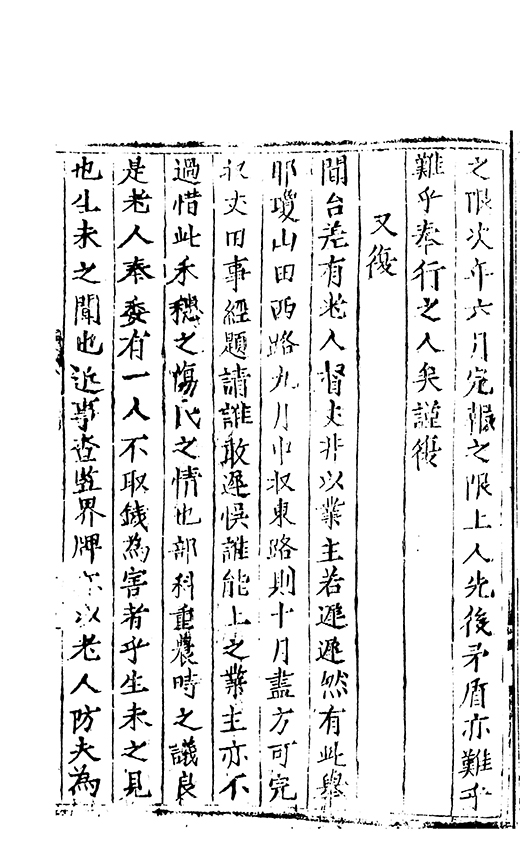 之限次年六月完報之限上人先後矛盾亦難乎
難乎奉行之人矣謹復
又復
聞台差有老人督丈非以業主若遲遲然有此舉
耶瓊山田西路九月中收東路則十月盡方可完
收丈田事經題請誰敢遲悮誰能上之業主亦不
過惜此禾穗之傷民之情也部科重農時之議良
是老人奉委有一人不取錢為害者乎生未之見
也生未之聞也近事查監界牌 以老人防夫為